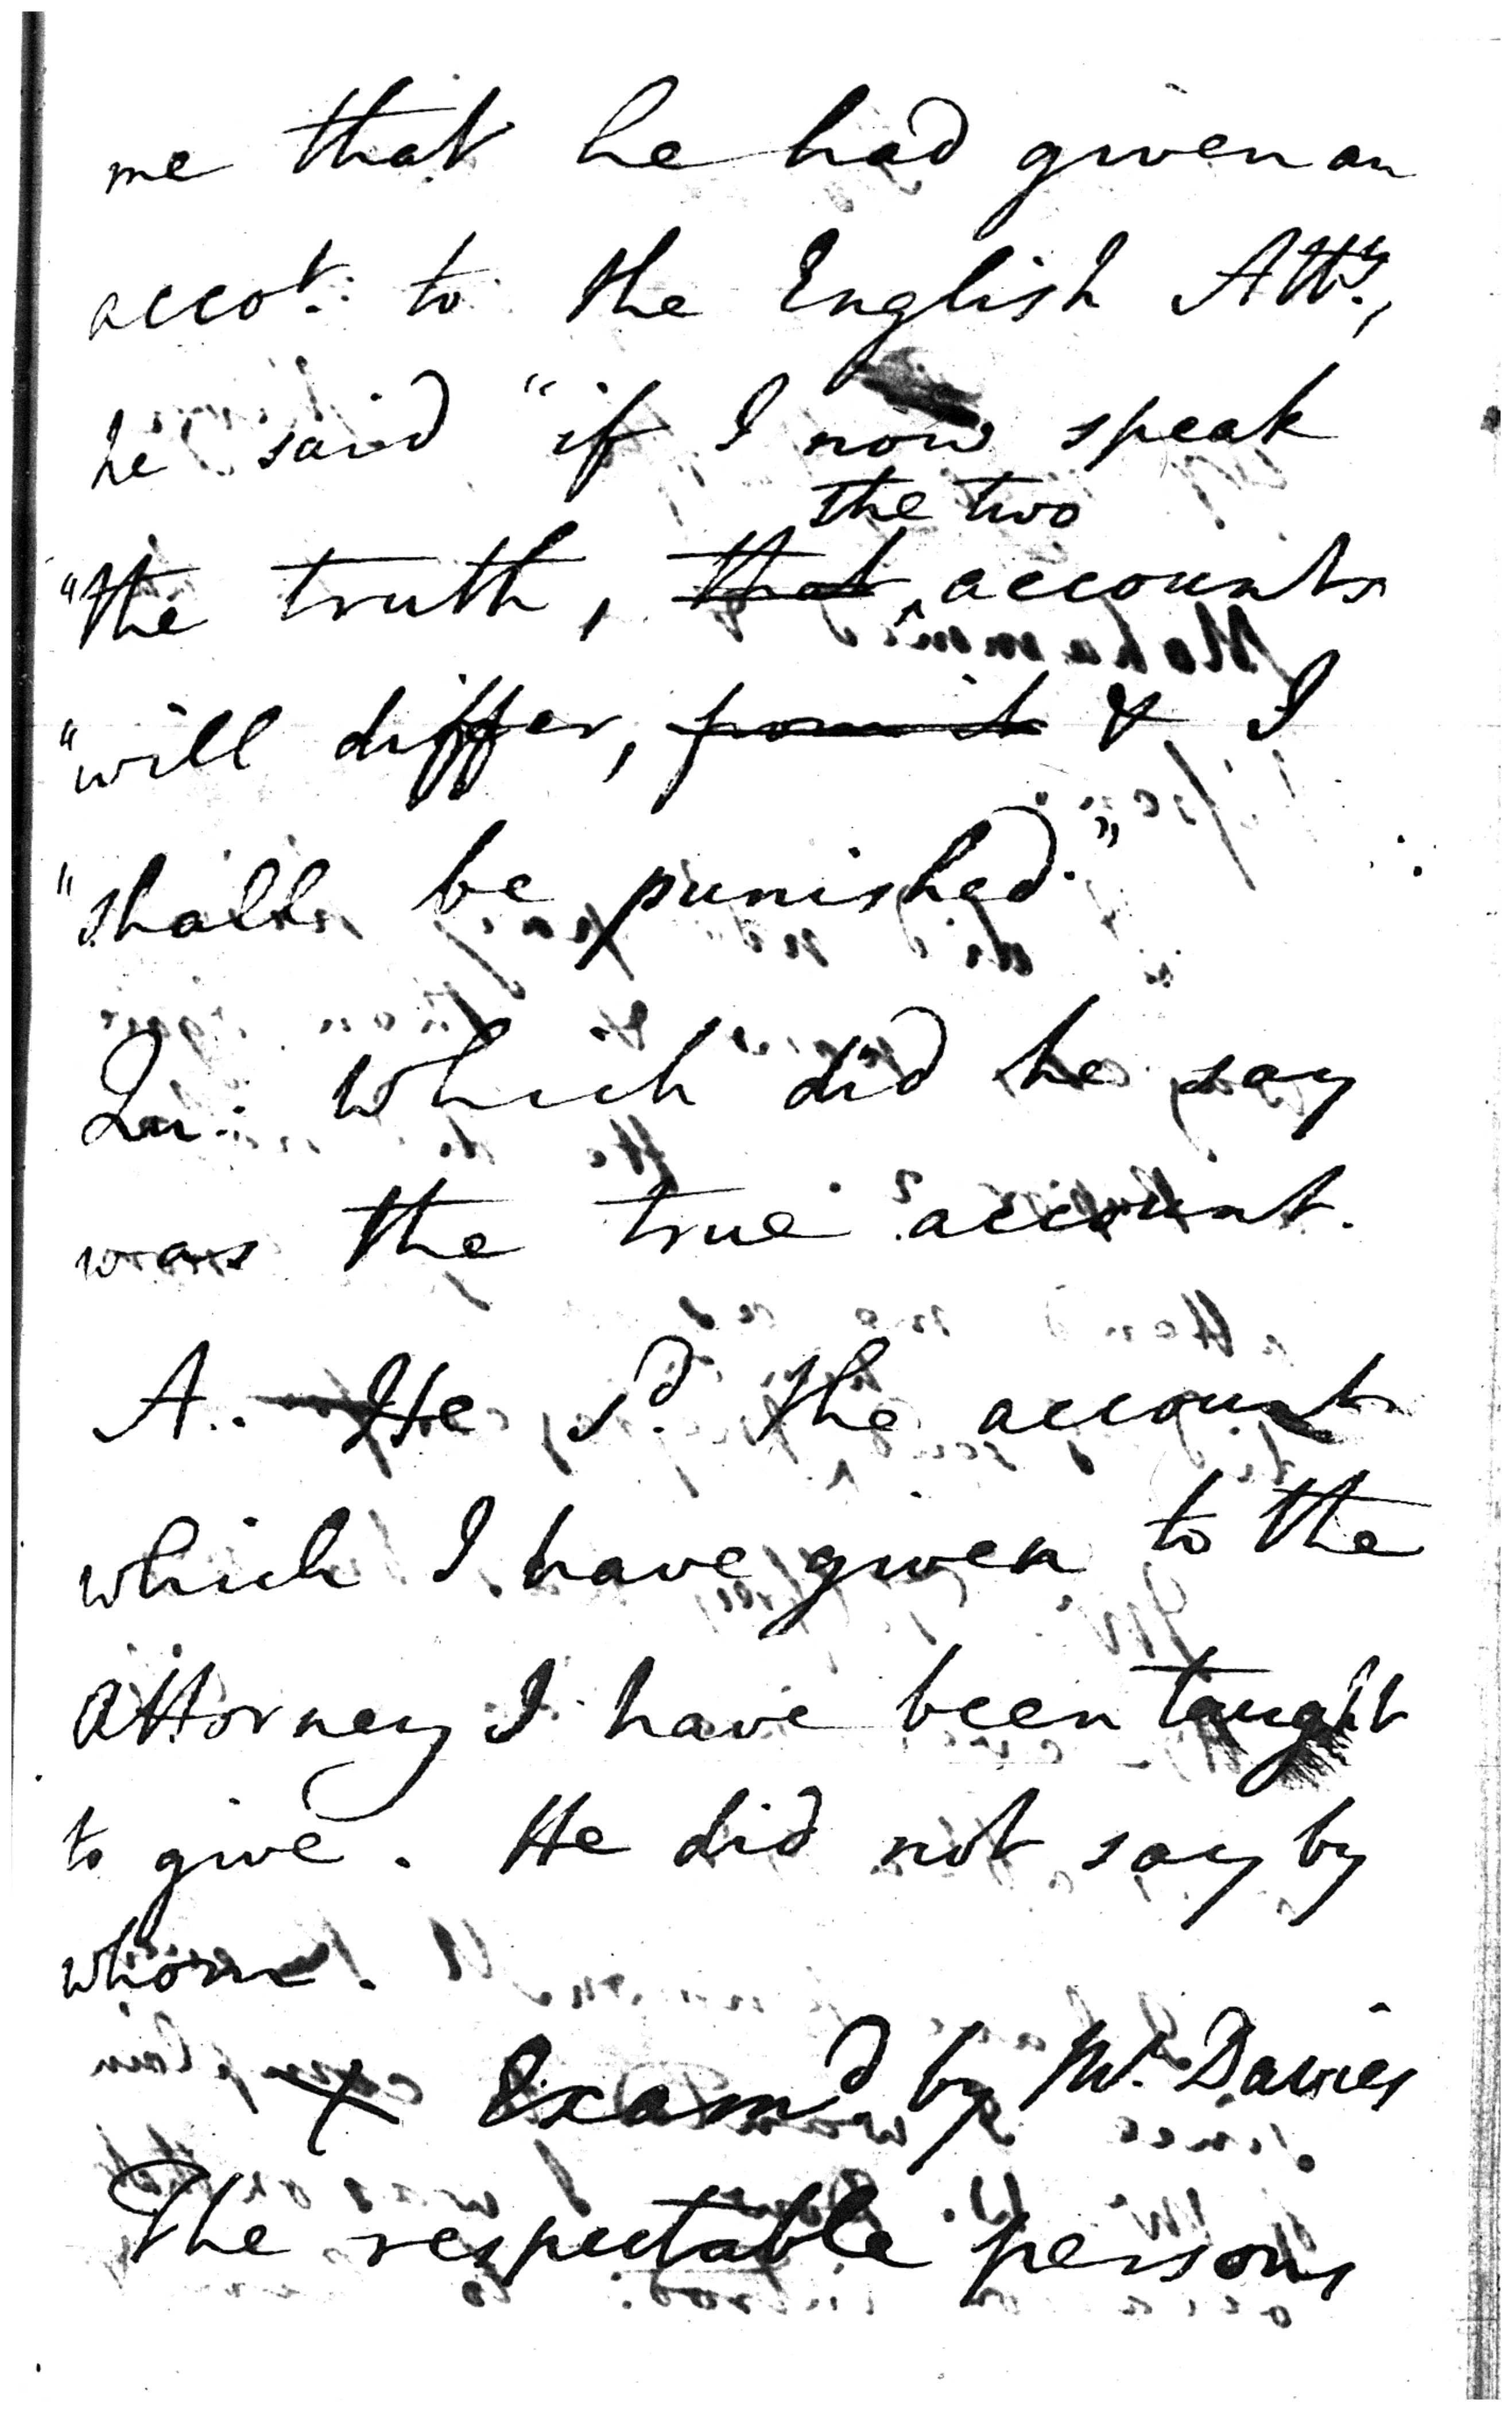 me that he had given an
accot. to the English Atty.,
he said "if I now speak
the two
"the truth, that accounts
"will differ, & I
"shall be punished."
Qu: Which did he say
was the true account.
A.. He sd. the account
which I have given to the
attorney I have been taught
to give. He did not say by
whom.
X Examd by Mr. Davies
The respectable persons